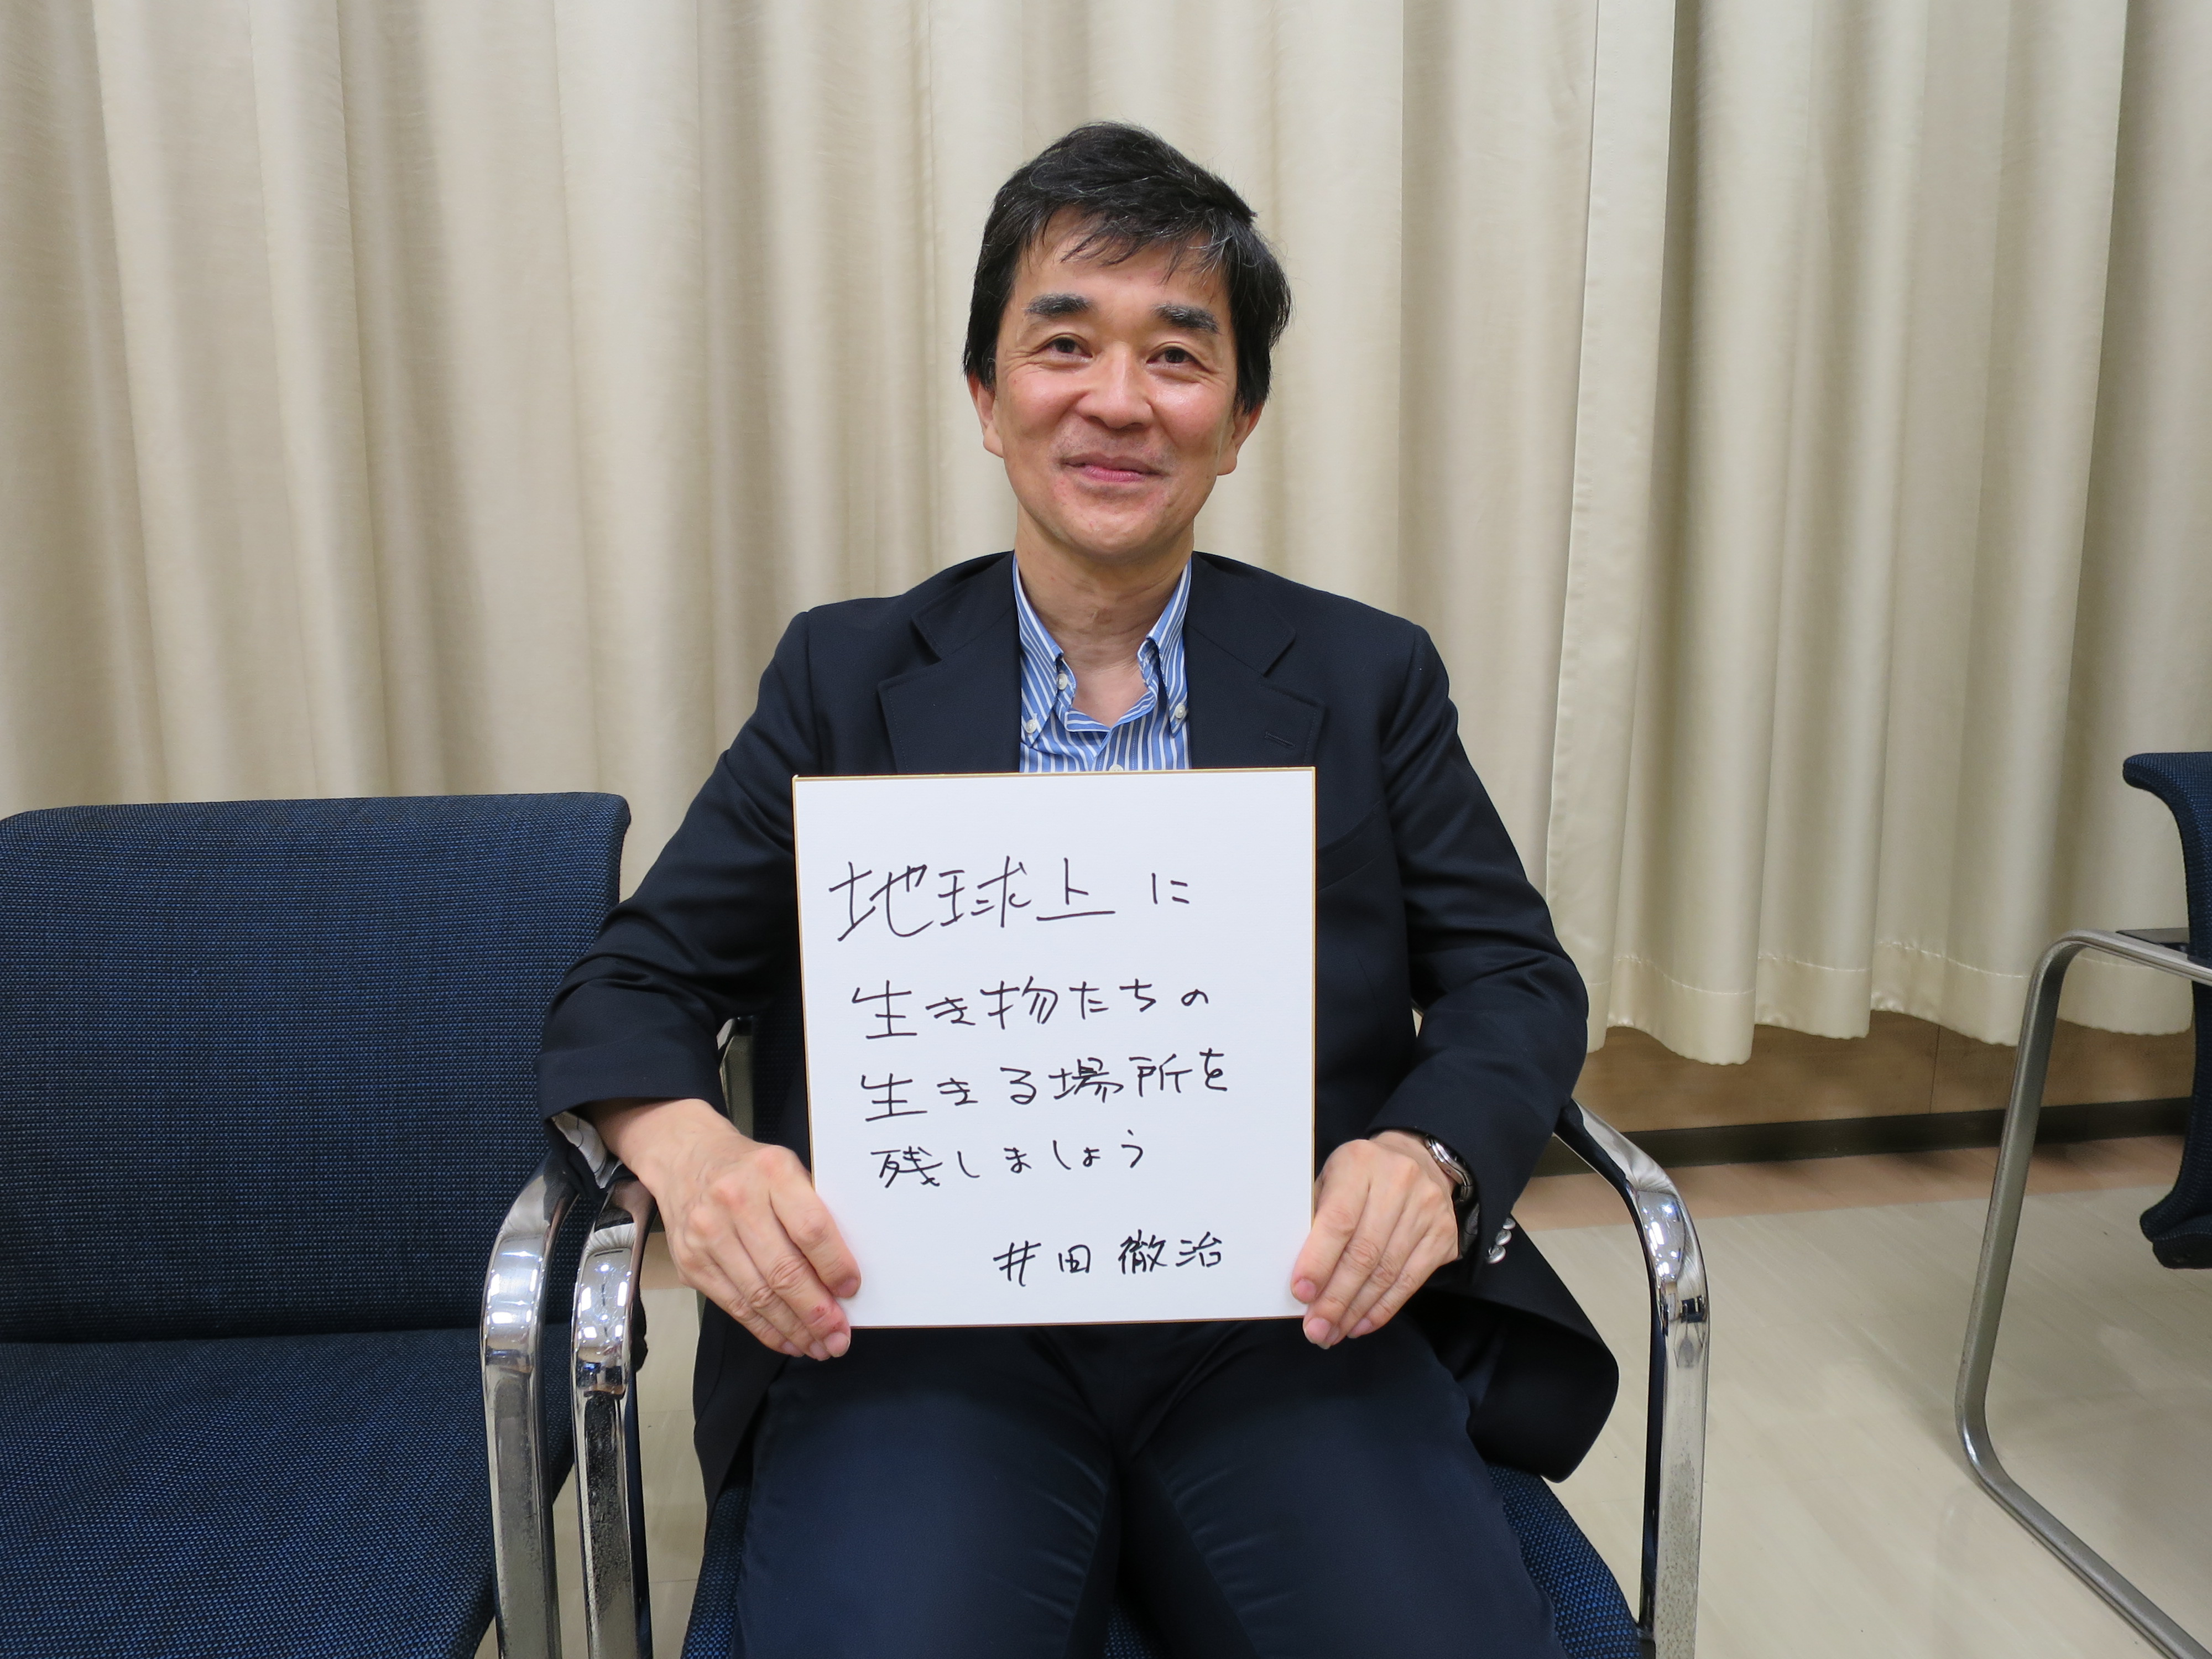 地球上に
生き物たちの
生きる場所を
残しましょう
井田徹治